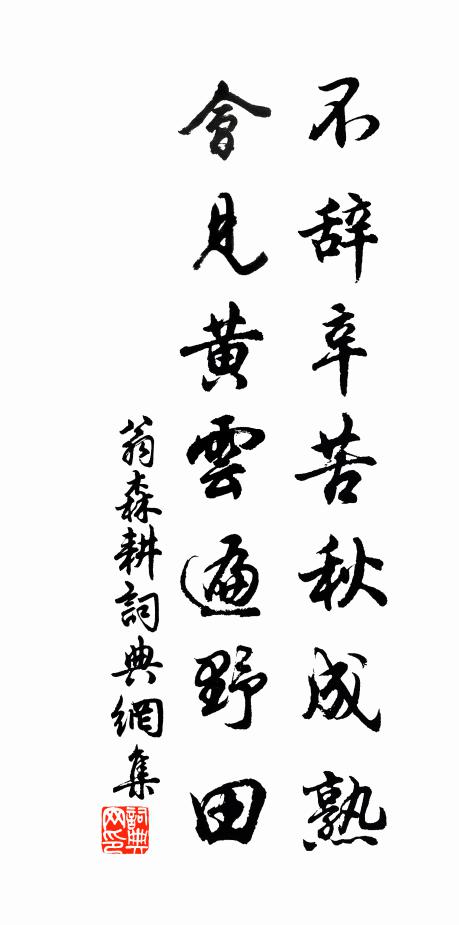 不辞辛苦秋成熟
會見黃雲遍野田
翁森耕詞典網集
詞典网印